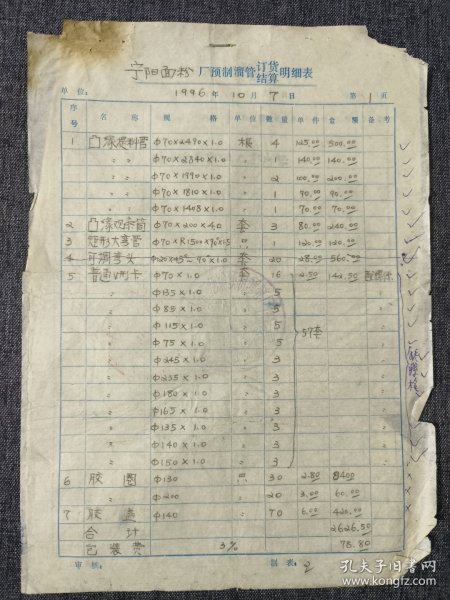 宁阳面粉厂预制溜管订货结算明细表
单位： 1996年10月7日 第1页
序号 名称 规格 单位 数量 单件 金额 备考
1 凸涤提料管 Φ70×2490×1.0 根 4 125.00 500.00
〃 〃 Φ70×2340×1.0 〃 1 140.00 140.00
〃 〃 Φ70×1990×1.0 〃 2 100.00 200.00
〃 〃 Φ70×1810×1.0 〃 1 90.00 90.00
〃 〃 Φ70×1408×1.0 〃 1 70.00 70.00
2 凸涤观察筒 Φ70×200×4.0 套 3 80.00 240.00
3 矩形大弯管 Φ70×R1500×90°×1.5 只 1 120.00 120.00
4 可调弯头 Φ120×45° 90°×1.0 套 20 28.00 560.00
5 普通V形卡 Φ70×1.0 套 16 2.50 142.50 配螺木
〃 Φ135×1.0 〃 5 〃
〃 Φ85×1.0 〃 5 〃
〃 Φ115×1.0 〃 5 〃
〃 Φ75×1.0 〃 5 57套 〃
〃 Φ245×1.0 〃 3 〃
〃 Φ235×1.0 〃 3 〃
〃 Φ180×1.0 〃 3 〃
〃 Φ165×1.0 〃 3 〃
〃 Φ135×1.0 〃 3 〃
〃 Φ140×1.0 〃 3 〃
〃 Φ150×1.0 〃 3 〃
6 胶圈 Φ130 只 30 2.80 84.00
〃 Φ200 〃 20 3.00 60.00
7 胶盖 Φ140 〃 70 6.00 420.00
合计 2626.50
包装费 3% 78.80
审核： 制表： 2
孔夫子旧书网